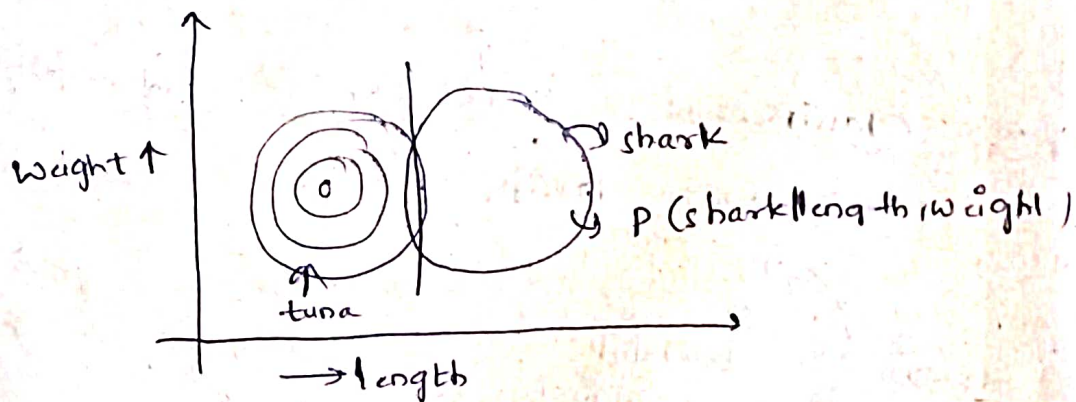 Weight ↑
shark
P(shark|length, weight)
tuna
→ length